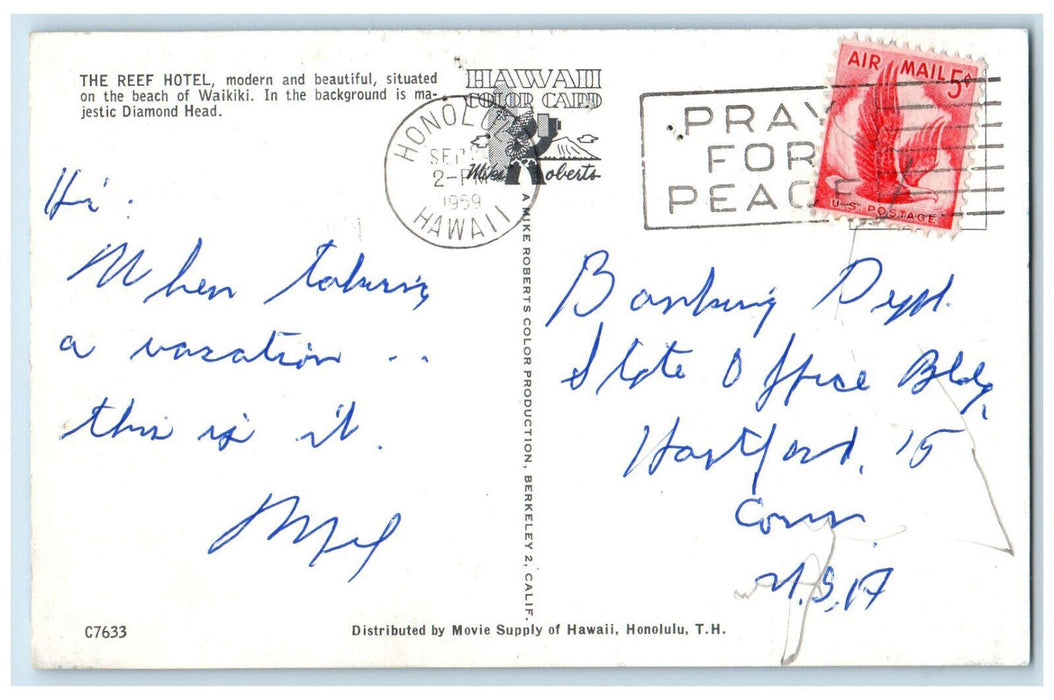 THE REEF HOTEL, modern and beautiful, situated
on the beach of Waikiki. In the background is ma-
jestic Diamond Head.
HAWAII
COLOR CARD
Mike Roberts
HONOLULU
SEP
2-PM
1959
HAWAII
PRAY
FOR
PEACE
AIR MAIL 5¢
U.S. POSTAGE
Hi.
When taking
a vacation ..
this is it.
A MIKE ROBERTS COLOR PRODUCTION, BERKELEY 2, CALIF.
Banking Dept.
State Office Bldg,
Hartford, 15
Conn.
U.S.A
C7633
Distributed by Movie Supply of Hawaii, Honolulu, T.H.